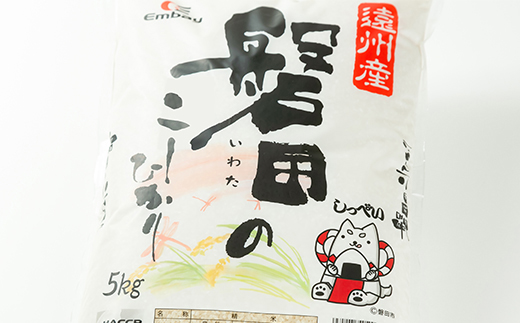 Embay
遠州産
磐田の
いわた
コシヒカリ
しっぺい
©磐田市
5kg
HACCP
名称 精米